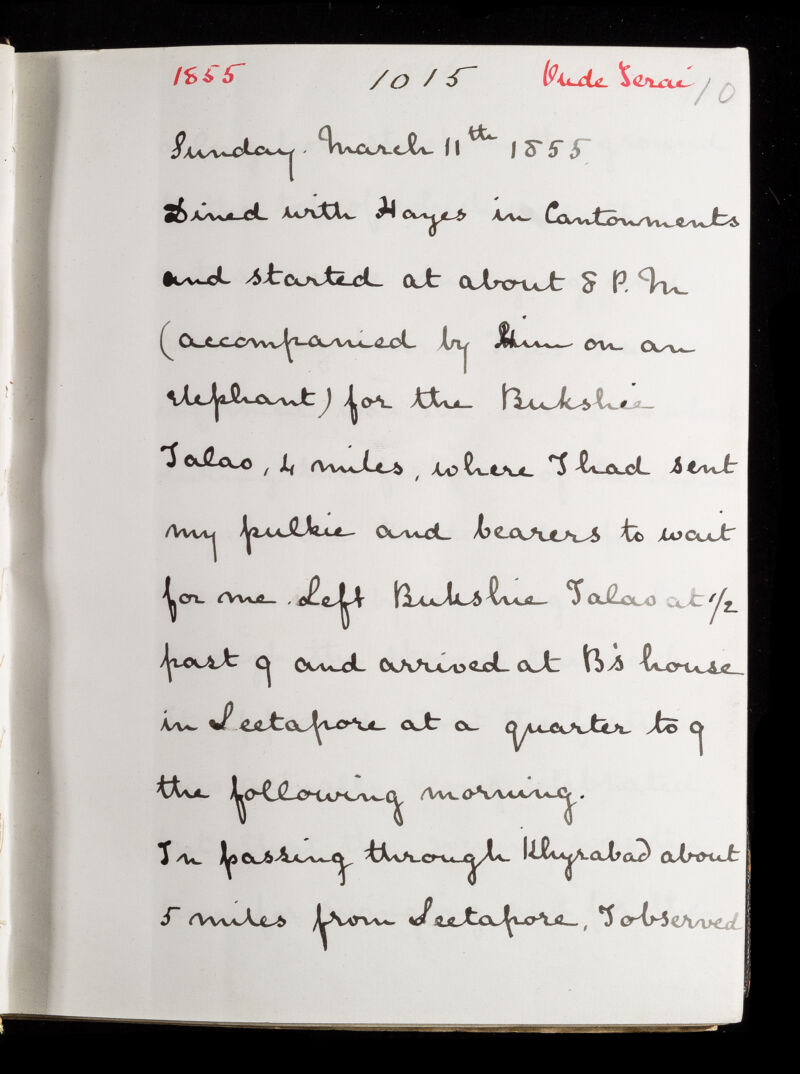 1855 1015 Oude Terai 10
Sunday. March 11th 1855.
Dined with Hayes in Cantonments
and started at about 8 P.M
(accompanied by Him on an
elephant) for the Bukshie
Talao, 4 miles, where I had sent
my pulkie and bearers to wait
for me. Left Bukshie Talao at 1/2
past 9 and arrived at B's house
in Seetapore at a quarter to 9
the following morning.
In passing through Khyrabad about
5 miles from Seetapore, I observed